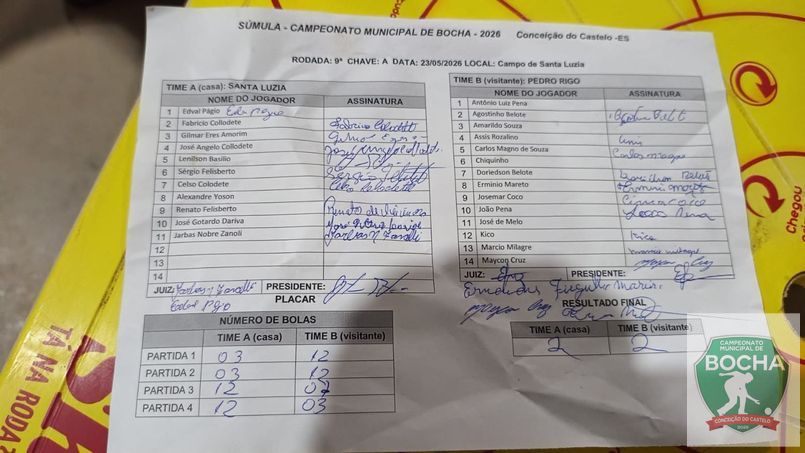 SÚMULA - CAMPEONATO MUNICIPAL DE BOCHA - 2026 Conceição do Castelo -ES
RODADA: 9ª CHAVE: A DATA: 23/05/2026 LOCAL: Campo de Santa Luzia
TIME A (casa): SANTA LUZIA
NOME DO JOGADOR ASSINATURA
1 Edval Págio Edval Págio
2 Fabricio Collodete
3 Gilmar Eres Amorim
4 José Angelo Collodete
5 Lenilson Basilio
6 Sérgio Felisberto
7 Celso Colodete Celso Colodette
8 Alexandre Yoson
9 Renato Felisberto
10 José Gotardo Dariva
11 Jarbas Nobre Zanoli Jarbas N Zanolli
12
13
14
JUIZ: Jarbas N Zanolli PRESIDENTE:
Edval Págio
TIME B (visitante): PEDRO RIGO
NOME DO JOGADOR ASSINATURA
1 Antônio Luiz Pena
2 Agostinho Belote
3 Amarildo Souza
4 Assis Rozalino
5 Carlos Magno de Souza Carlos Magno
6 Chiquinho
7 Doriedson Belote
8 Erminio Mareto
9 Josemar Coco
10 João Pena
11 José de Melo
12 Kico Kico
13 Marcio Milagre
14 Maycon Cruz Maycon Cruz
JUIZ: PRESIDENTE:
PLACAR
NÚMERO DE BOLAS
TIME A (casa) TIME B (visitante)
PARTIDA 1 03 12
PARTIDA 2 03 12
PARTIDA 3 12 02
PARTIDA 4 12 03
RESULTADO FINAL
TIME A (casa) TIME B (visitante)
2 2
TÁ NA RODA
Chegou
CAMPEONATO
MUNICIPAL DE
BOCHA
CONCEIÇÃO DO CASTELO
2026